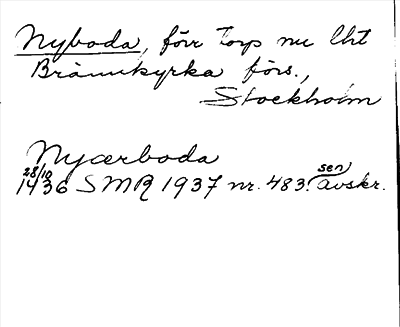 Nyboda, förr Torp nu lht
Brännkyrka förs.,
Stockholm
Nyærboda
28/10 sen
1436 SMR 1937 nr. 483. avskr.